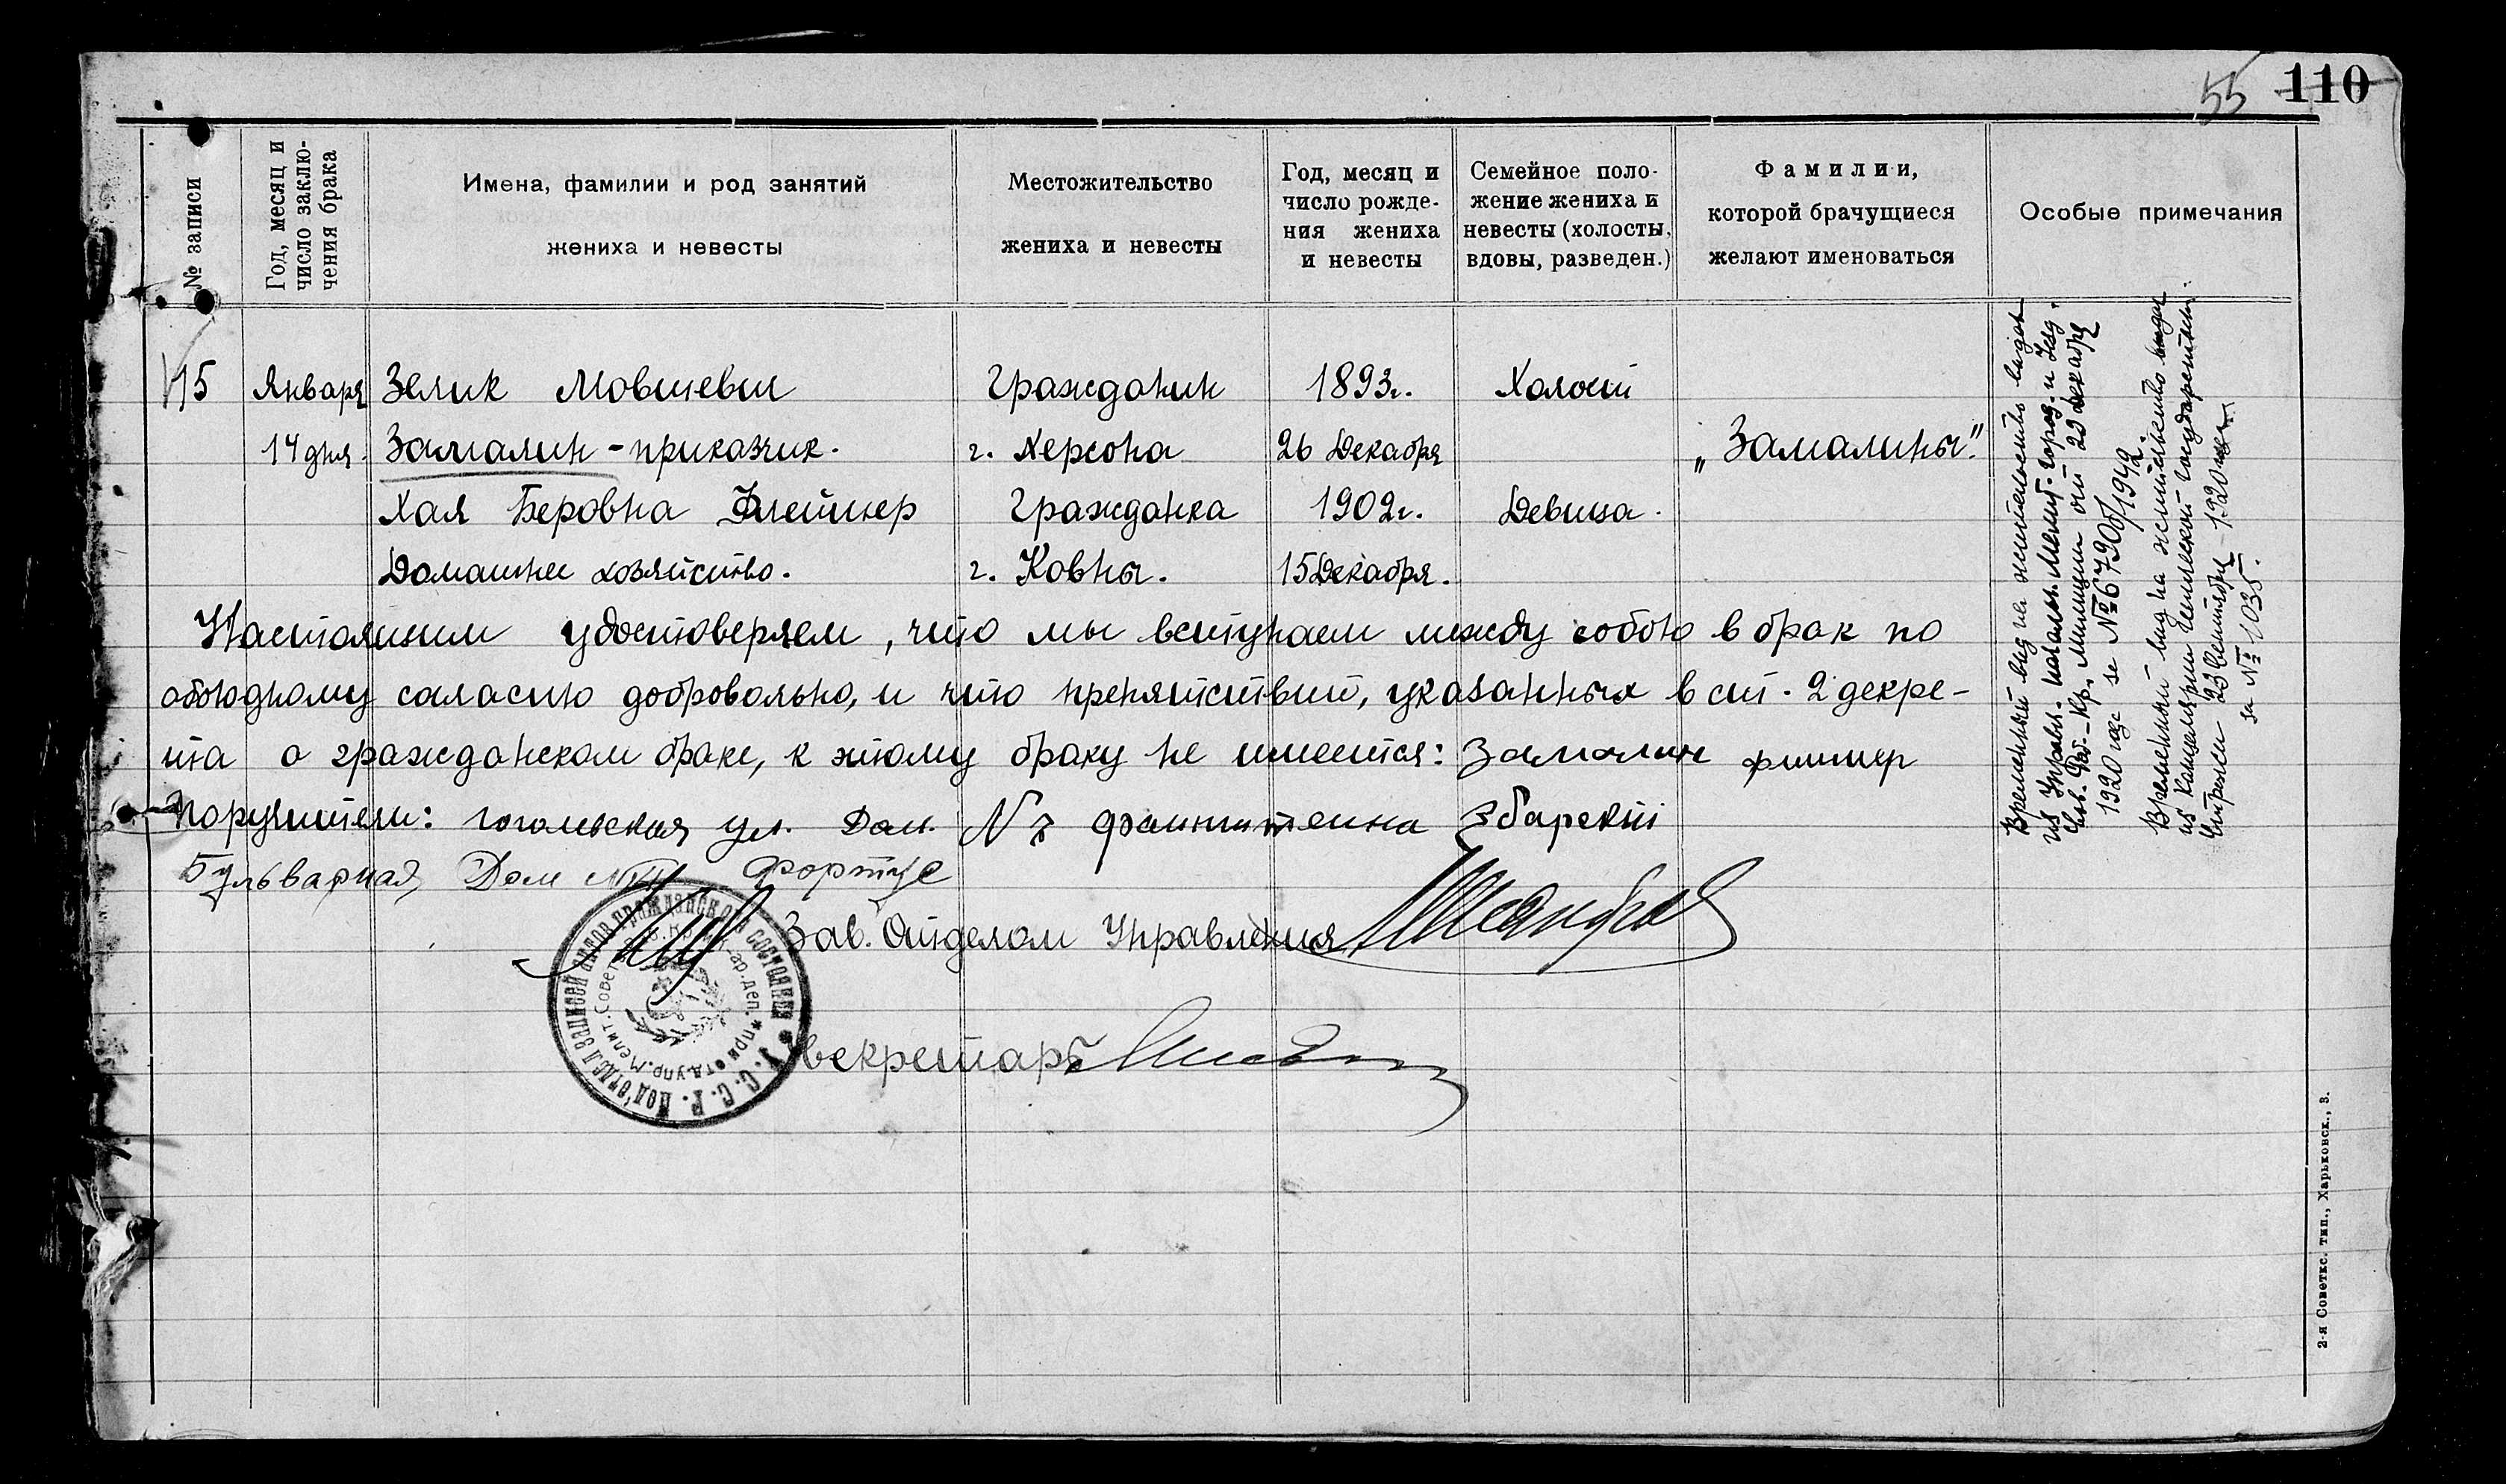 55 110
№ записи
Год, месяц и
число заклю-
чения брака
Имена, фамилии и род занятий
жениха и невесты
Местожительство
жениха и невесты
Год, месяц и
число рожде-
ния жениха
и невесты
Семейное поло-
жение жениха и
невесты (холосты,
вдовы, разведен.)
Фамилии,
которой брачущиеся
желают именоваться
Особые примечания
15 Января Зелик Мовшевич Гражданин 1893г. Холост
14 дня. Замалин - приказчик. г. Херсона 26 Декабря „Замалины".
Хая Беровна Гражданка 1902г. Девица.
Домашнее хозяйство. г. Ковны. 15 Декабря.
Настоящим удостоверяем, что мы вступаем между собою в брак по
обоюдному согласию добровольно, и что препятствий, указанных в ст. 2 декре-
та о гражданском браке, к этому браку не имеется: Замалин
Поручители: гоголевская ул. Дом. N 7 Збарский
Бульварная, Дом
Зав. Отделом Управления
Секретарь
У.С.С.Р. Под'отдел записей актов гражданского состояния
при отд. упр. Мелит. Совет
Временный вид на жительство выдан
из Управл. начальн. Мелит. город. и уезд.
Сов. Раб.-Кр. Милиции от 29 Декабря
1920 года за № 67906/1942.
Временный вид на жительство выдан
из Канцелярии Чешской государственн.
23 Сентября 1920
за № 1035.
2-я Советск. тип., Харьковск., 3.